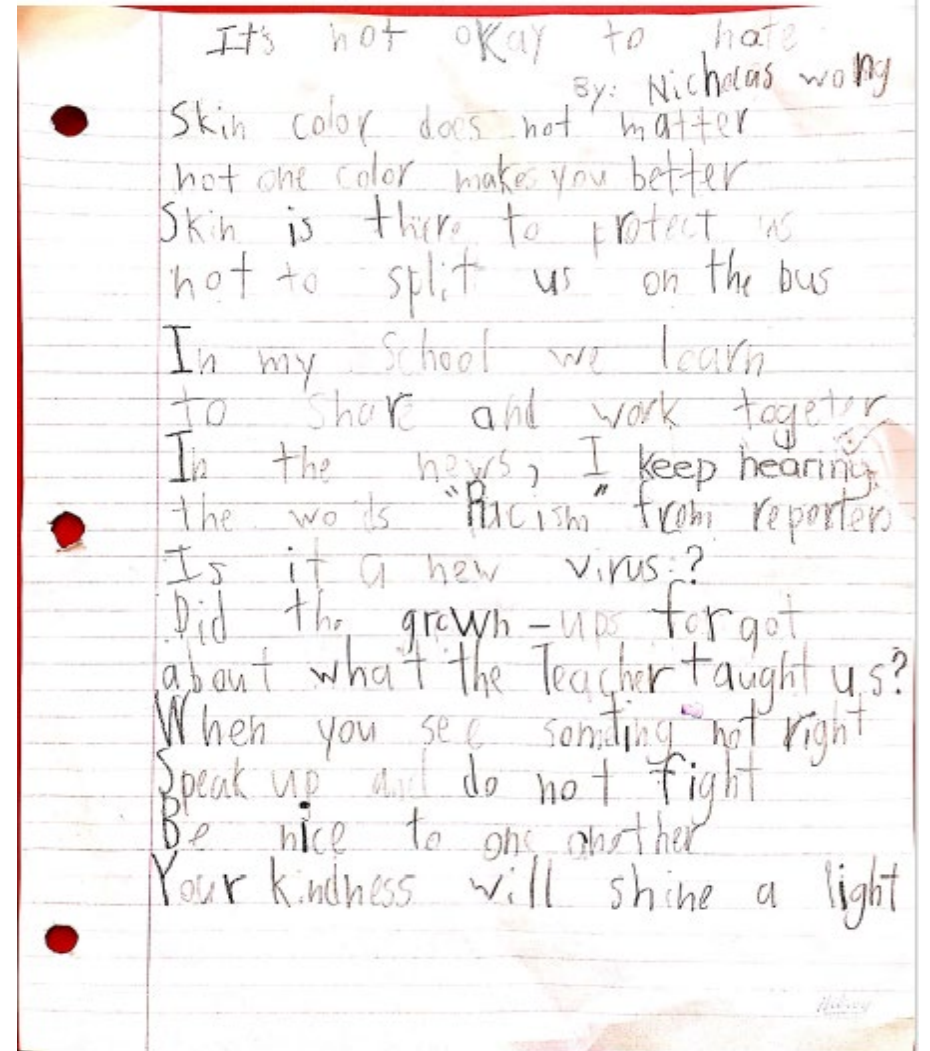 It's not okay to hate
By: Nicholas wong
Skin color does not matter
not one color makes you better
Skin is there to protect us
not to split us on the bus
In my School we learn
to share and work togeter
In the news, I keep hearing
the wo ds "Racism" from reporters
Is it a new virus?
Did the grown-ups forgot
about what the Teacher taught us?
When you see somding not right
Speak up and do not fight
Be nice to one another
Your kindness will shine a light